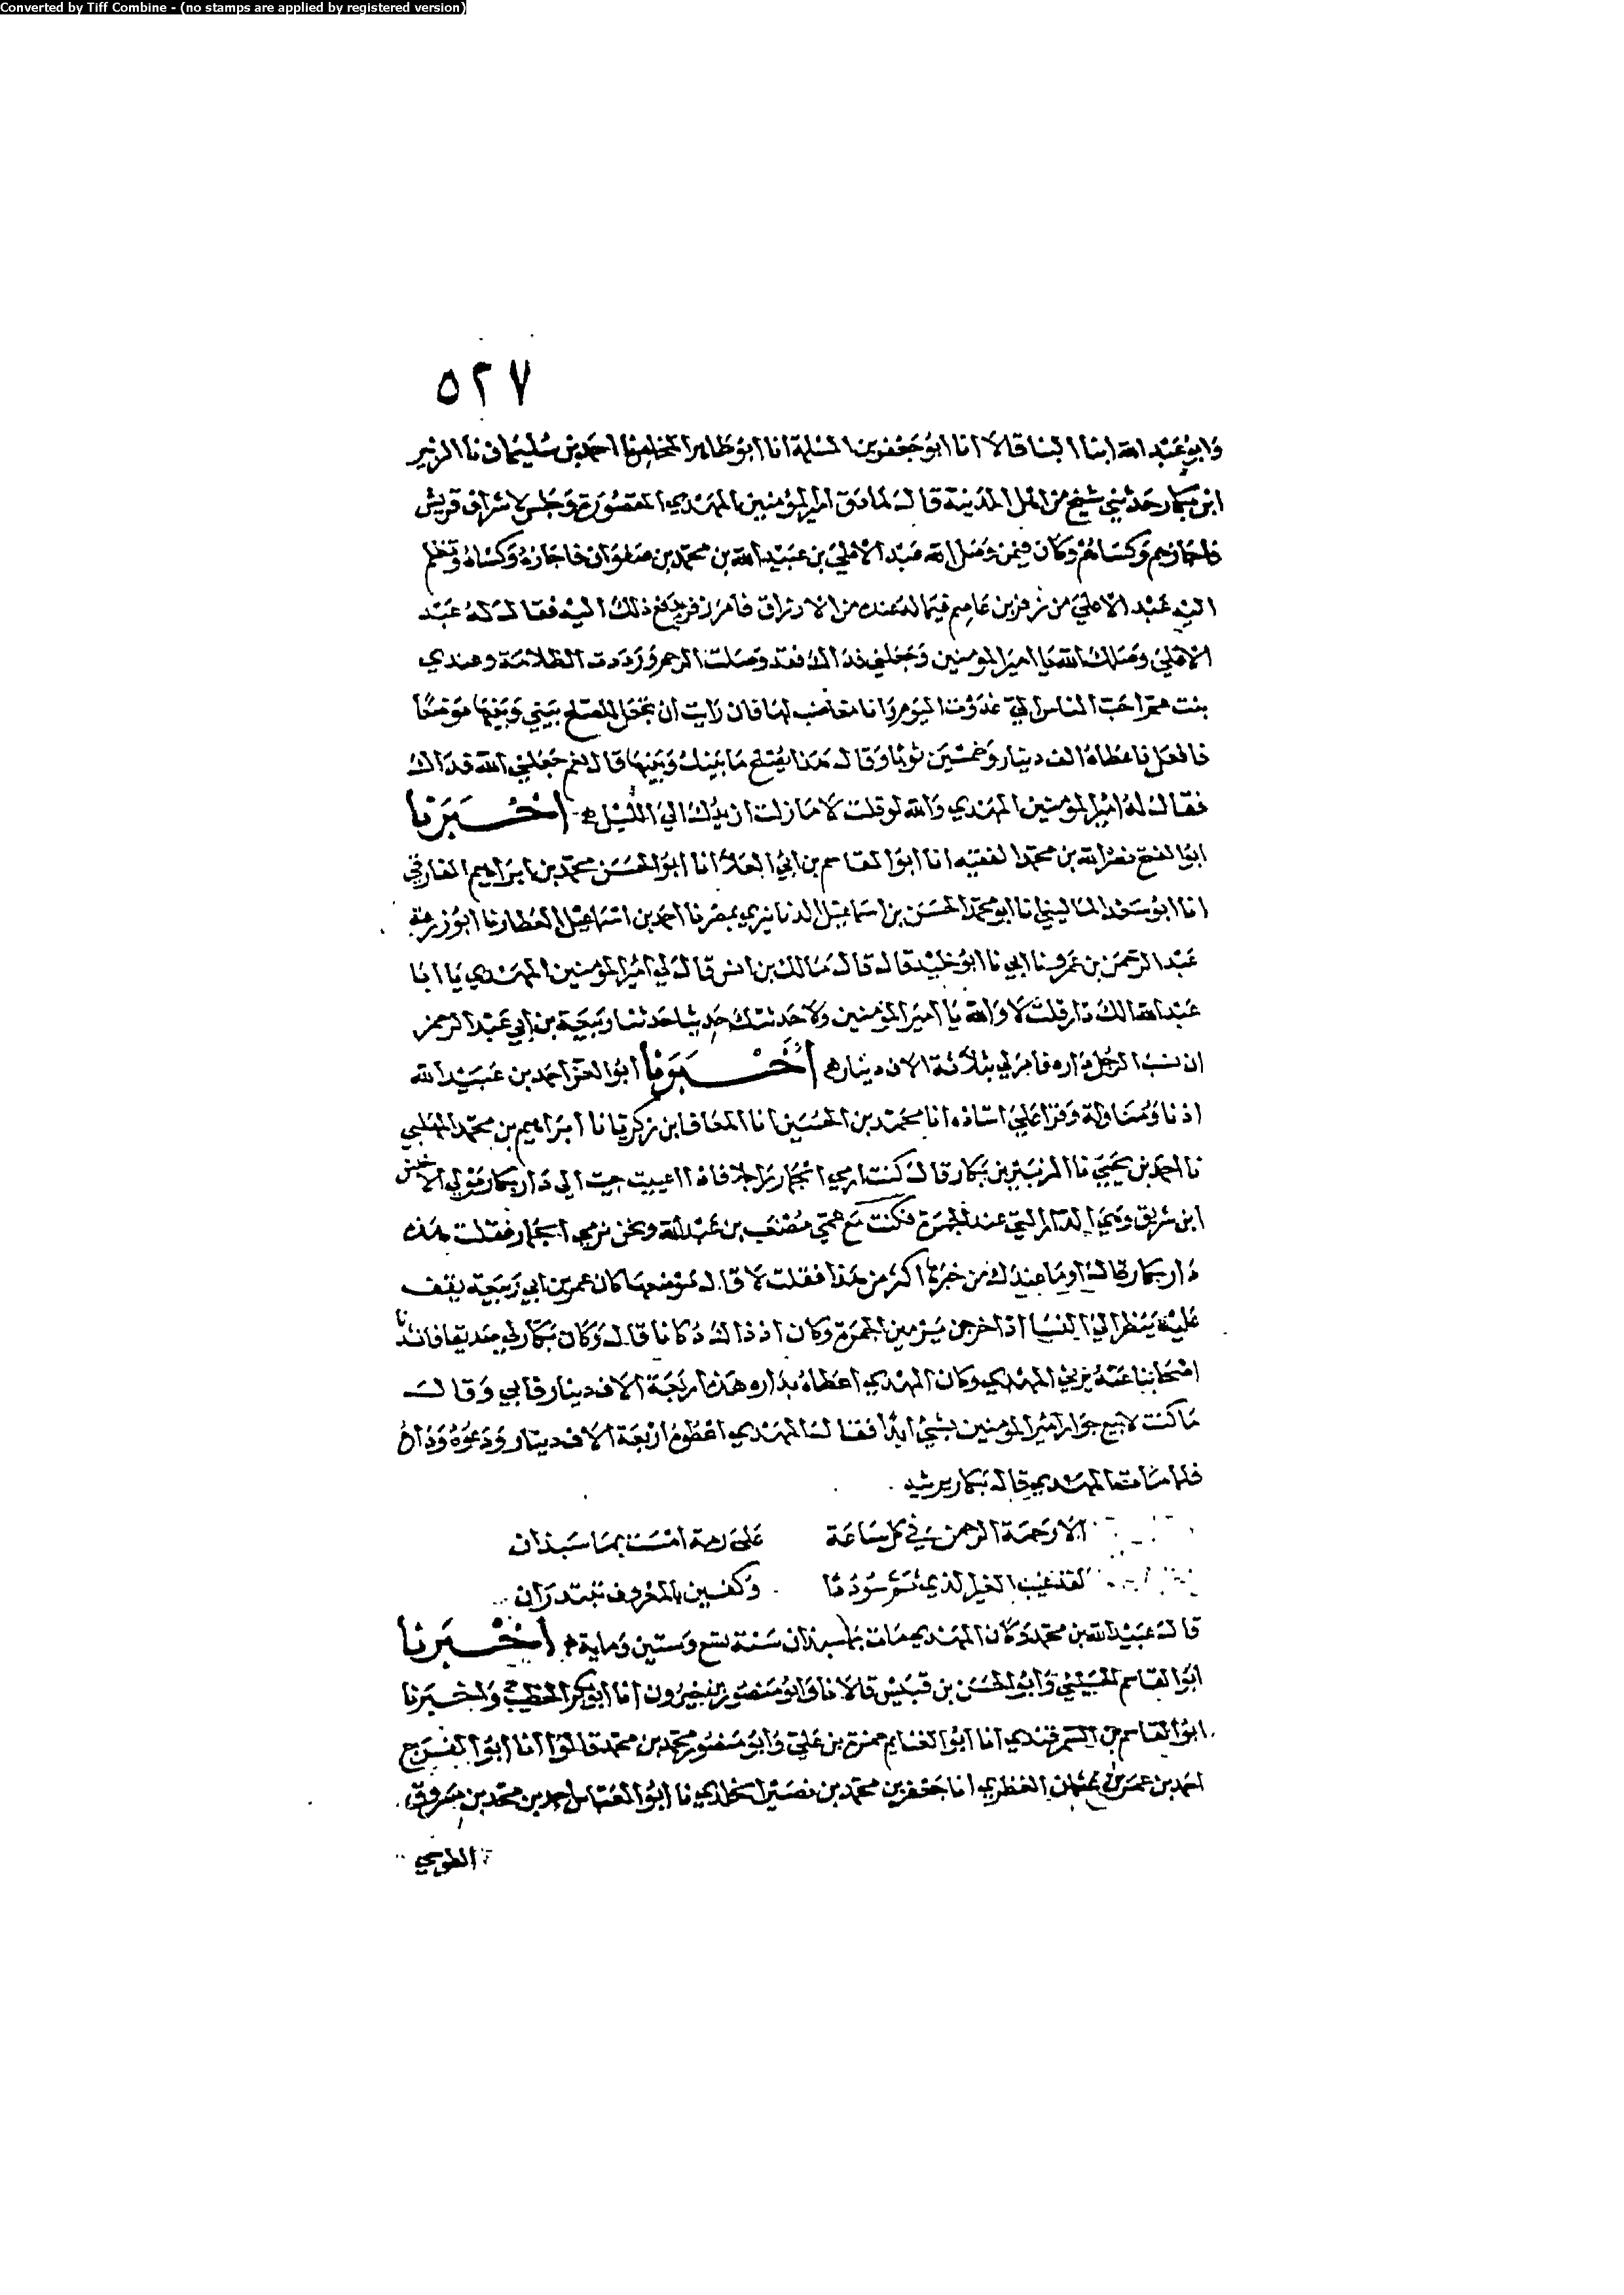 Converted by Tiff Combine - (no stamps are applied by registered version)
٥٢٧
وابو عبد الله ابنا البنا قالا انا ابو جعفر بن المسلمة انا ابو طاهر المخلص نا احمد بن سليمان نا الزبير
ابن بكار حدثني شيخ من اهل المدينة قال لما دق امير المؤمنين المهدي المقصورة وجلس لاشراف قريش
فاجازهم وكساهم وكان فيمن وصل اليه عبد الاعلى بن عبيد الله بن محمد بن صفوان فاجازه وكساه وتظلم
اليه عبد الاعلى من زفر بن عاصم فيما له عنده من الارزاق فامر زفر بدفع ذلك اليه فقال له عبد
الاعلى وصلك الله يا امير المومنين وجعلني فداك فقد وصلت الرحم ورددت الظلامة وعندي
بنت عم احب الناس الي غدوت اليوم وانا مغاضب لها فان رايت ان تجعل للصلح بيني وبينها موضعا
فافعل فاعطاه الف دينار وخمسين ثوبا وقال هذا يصلح ما بينك وبينها قال نعم جعلني الله فداك
فقال له امير المومنين المهدي والله لو قلت لا ما زلت ازيدك الى الليل اخبرنا
ابو الفتح نصر الله بن محمد الفقيه انا ابو القاسم بن ابي العلا انا ابو الحسن محمد بن ابراهيم الفارقي
انا ابو سعد الماليني انا ابو محمد الحسن بن اسماعيل الدنانيري بمصر نا احمد بن اسماعيل العطار نا ابو زرعة
عبد الرحمن بن عمرو نا ابي نا ابو خليد قال قال مالك بن انس قال لي امير المومنين المهدي يا ابا
عبد الله الك دار قلت لا والله يا امير المؤمنين ولاحدثنك حديثا حدثنا ربيعة بن ابي عبد الرحمن
ان نسب الرجل داره فامر لي بثلاثة الاف دينار اخبرنا ابو العز احمد بن عبيد الله
اذنا ومناولة وقرا علي اسناده انا محمد بن الحسين انا المعافا بن زكريا نا ابراهيم بن محمد المهلبي
نا احمد بن يحيى نا الزبير بن بكار قال كنت ارمي الجمار راجلا فاذا اعييت جيت الى دار بكار مولى الاخنس
ابن شريق وهي الدار التي عند الجمرة فكنت مع عمي مصعب بن عبد الله ونحن نرمي الجمار فقلت هذه
دار بكار قال اوما عندك من خبرها اكثر من هذا فقلت لا قال موضعها كان عمر بن ابي ربيعة يقف
عليه ينظر الى النسا اذا خرجن يرمين الجمرة وكان اذ ذاك دكانا قال وكان بكار لي صديقا فانشدنا
المهدي وكان المهدي اعطاه بداره هذه اربعة الاف دينار فابي وقال
ما كنت لابيع جوار امير المومنين بشيء ابدا فقال المهدي اعطوه اربعة الاف دينار ودعوه وداره
فلما مات المهدي قال بكار يرثيه
الا رحمة الرحمن في كل ساعة على رمة امست بماسبذان
لقد غيب القبر الذي تم سوددا وكفين بالمعروف تبتدران
قال عبيد الله بن محمد وكان المهدي مات بماسبذان سنة تسع وستين وماية اخبرنا
ابو القاسم الحسيني وابو الحسن بن قبيس قالا نا وابو منصور بن خيرون انا ابو بكر الخطيب واخبرنا
ابو القاسم بن السمرقندي انا ابو الغنايم حمزة بن علي وابو منصور محمد بن محمد قالوا انا ابو الفرج
احمد بن عمر بن عثمان الغضاري انا جعفر بن محمد بن نصير الخلدي نا ابو العباس احمد بن محمد بن مسروق
الطوسي